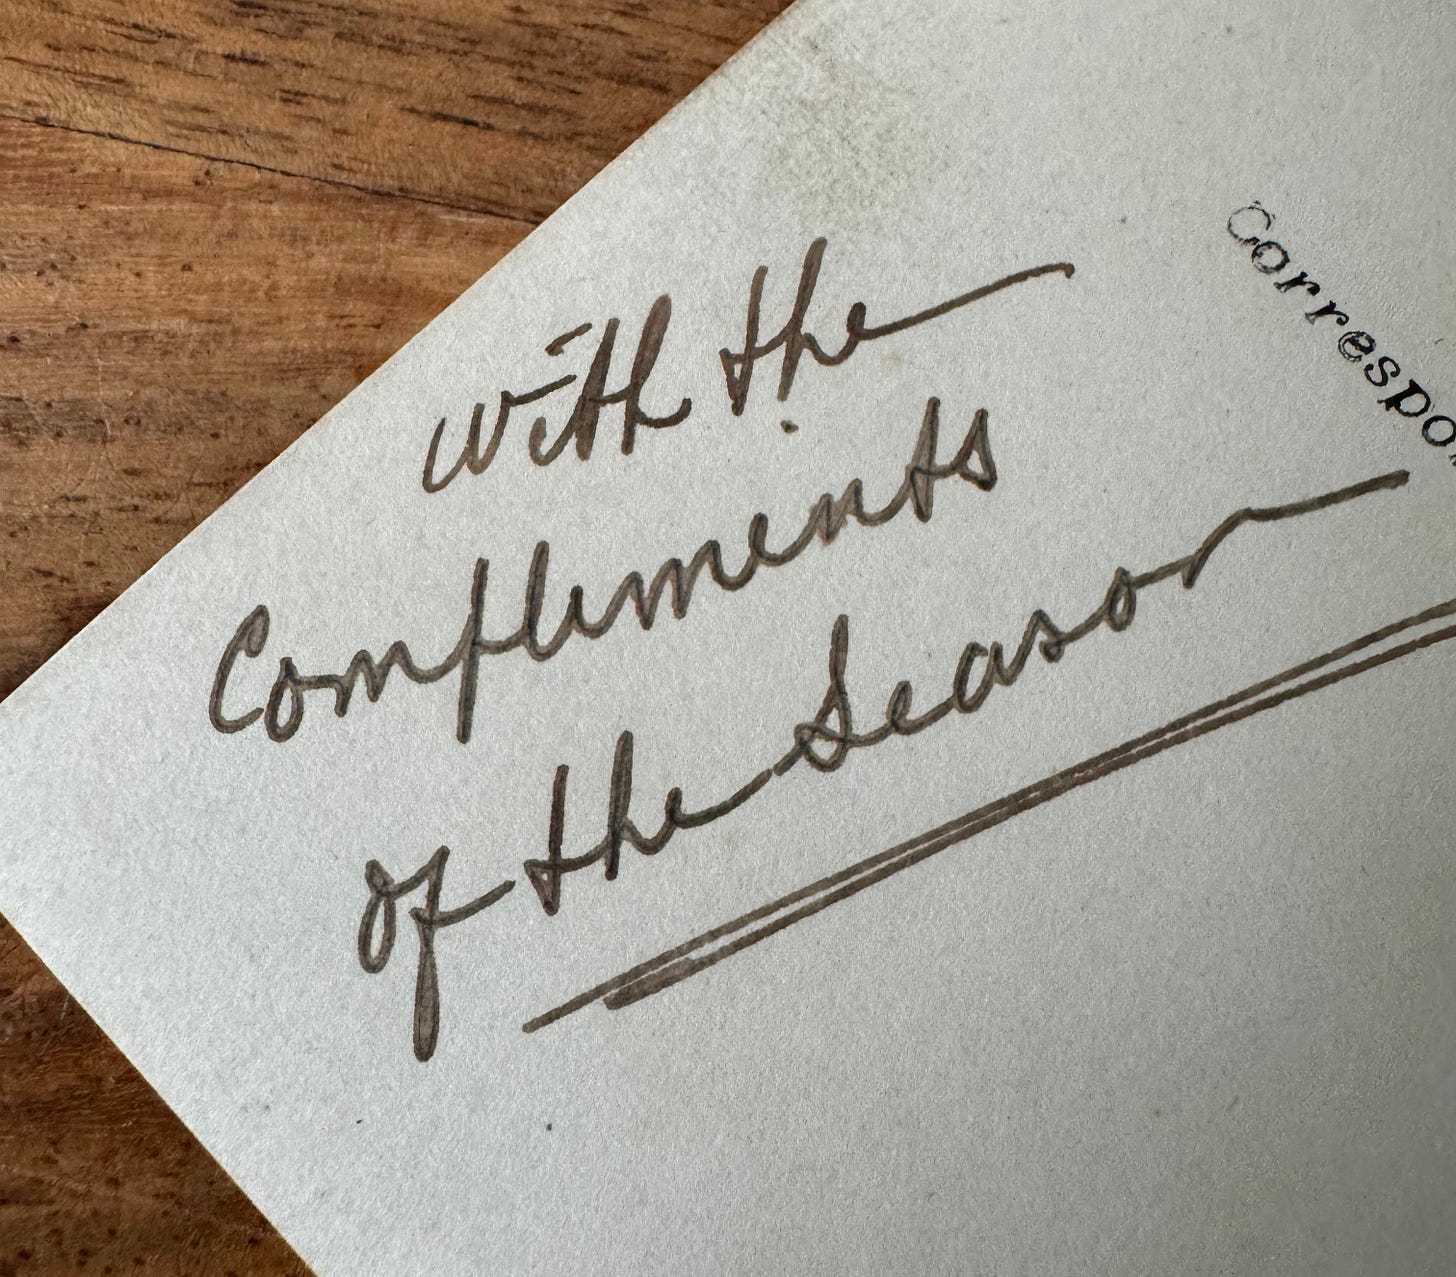 with the
Compliments
of the Season
Correspo